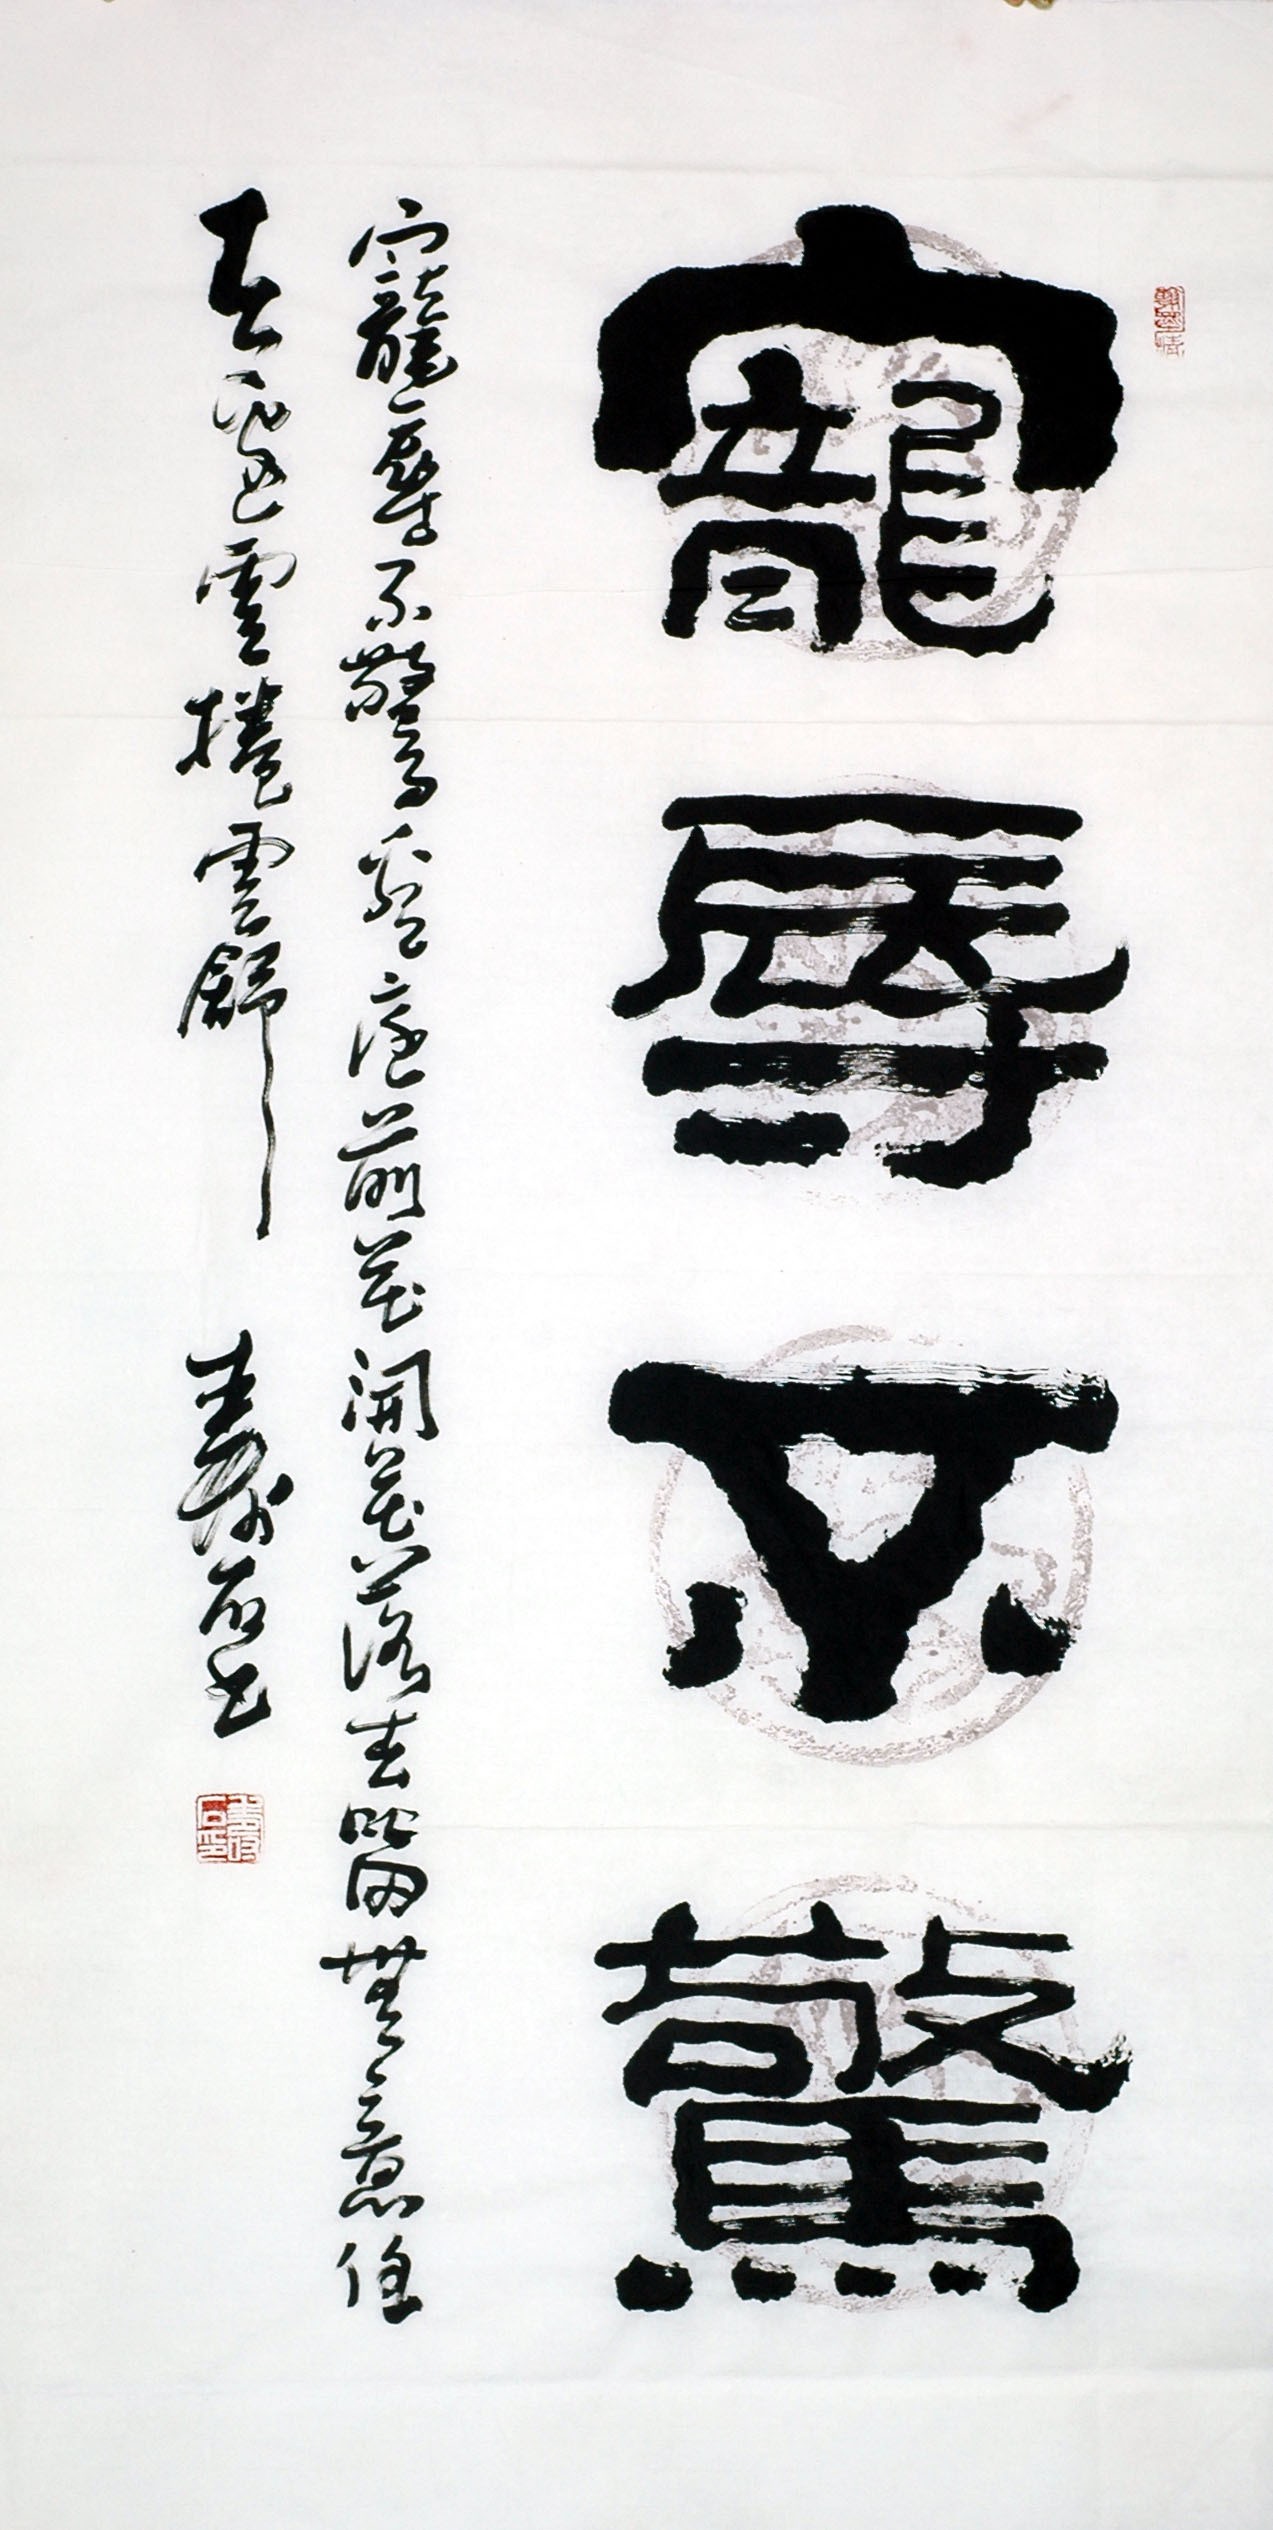 寵辱不驚
寵辱不驚看庭前花開花落去留無意任
天邊雲捲雲舒
壽石書